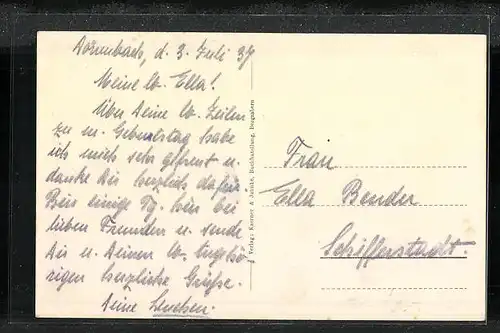 Dörrenbach, d. 3. Juli 37
Meine lb. Ella!
Über Deine lb. Zeilen
zu m. Geburtstag habe
ich mich sehr gefreut u.
danke Dir herzlich dafür.
Bin einige Tg. hier bei
lieben Freunden u. sende
Dir u. Deinen lb. Angehö-
rigen herzliche Grüße.
Deine Lenchen.
Buchhandlung, Bergzabern
Frau
Ella Bender
Schifferstadt.